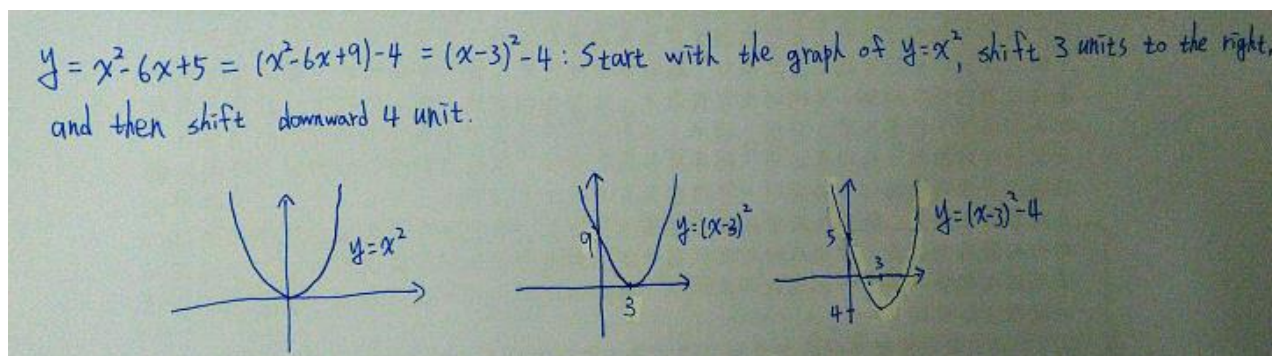 y = x²-6x+5 = (x²-6x+9)-4 = (x-3)²-4 : Start with the graph of y=x², shift 3 units to the right,
and then shift downward 4 unit.
y=x²
9
3
y=(x-3)²
5
3
4
y=(x-3)²-4